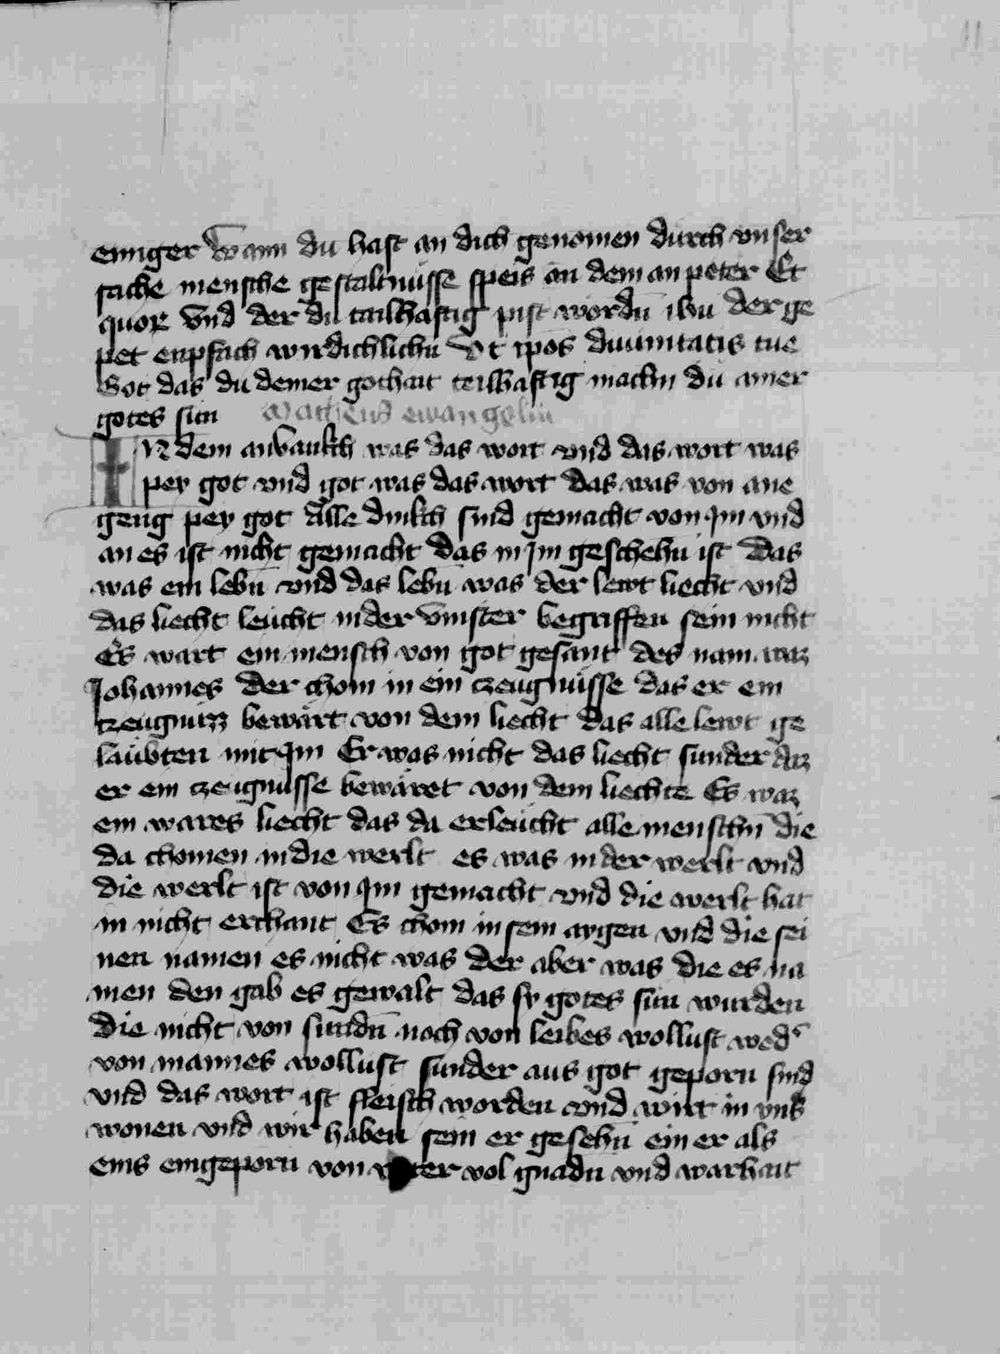 11
einiger Wann du hast an dich genomen durch vnser
sache mensche gestaltnüsse speis an dem anpeter Et
quor Vnd der du tailhaftig pist wordn̄ ihu der ge
pet enpfach wirdichlichn Vt ip̄os diuinitatis tue
Got das du deiner gothait teilhaftig machn du ainer
gotes sun Matheus ewangeliū
In dem anvankch was das wort vnd das wort was
pey got vnd got was das wort das was von ane
geng pey got Alle dinkch sind gemacht von Im vnd
an es ist nicht gemacht das in Im geschehn ist Das
was ein lebn̄ vnd das lebn̄ was der lewt liecht vnd
das liecht leucht in der vinster begriffen sein nicht
Es wart ein mensch von got gesant des nam waz
Johannes der chom in ein czeugnüsse das er ein
czeugnüzz bewärt von dem liecht das alle lewt ge
laubten mit Im Er was nicht das liecht sunder daz
er ein czeugnüsse bewäret von dem liechte Es waz
ein wares liecht das da erleucht alle menschn̄ die
da chomen in die werlt es was in der werlt vnd
die werlt ist von Im gemacht vnd die werlt hat
in nicht erchant Es chom in sein aygen vnd die sei
nen namen es nicht was der aber was die es na
men den gab es gewalt das sy gotes sun wurden
die nicht von sundn̄ noch von leibes wollust wed'
von mannes wollust sunder aus got geporn sind
vnd das wort ist fleisch worden vnd wirt in vns
wonen vnd wir haben sein er gesehn̄ ein er als
eins eingeporn von vater vol gnadn vnd warhait